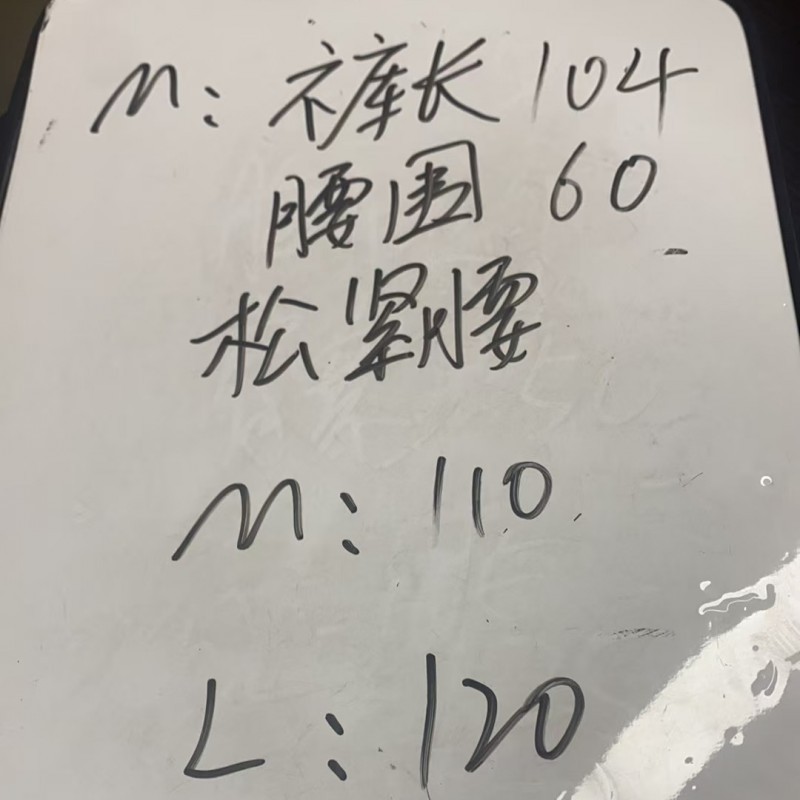 M: 裤长 104
腰围 60
松紧腰
M: 110
L: 120